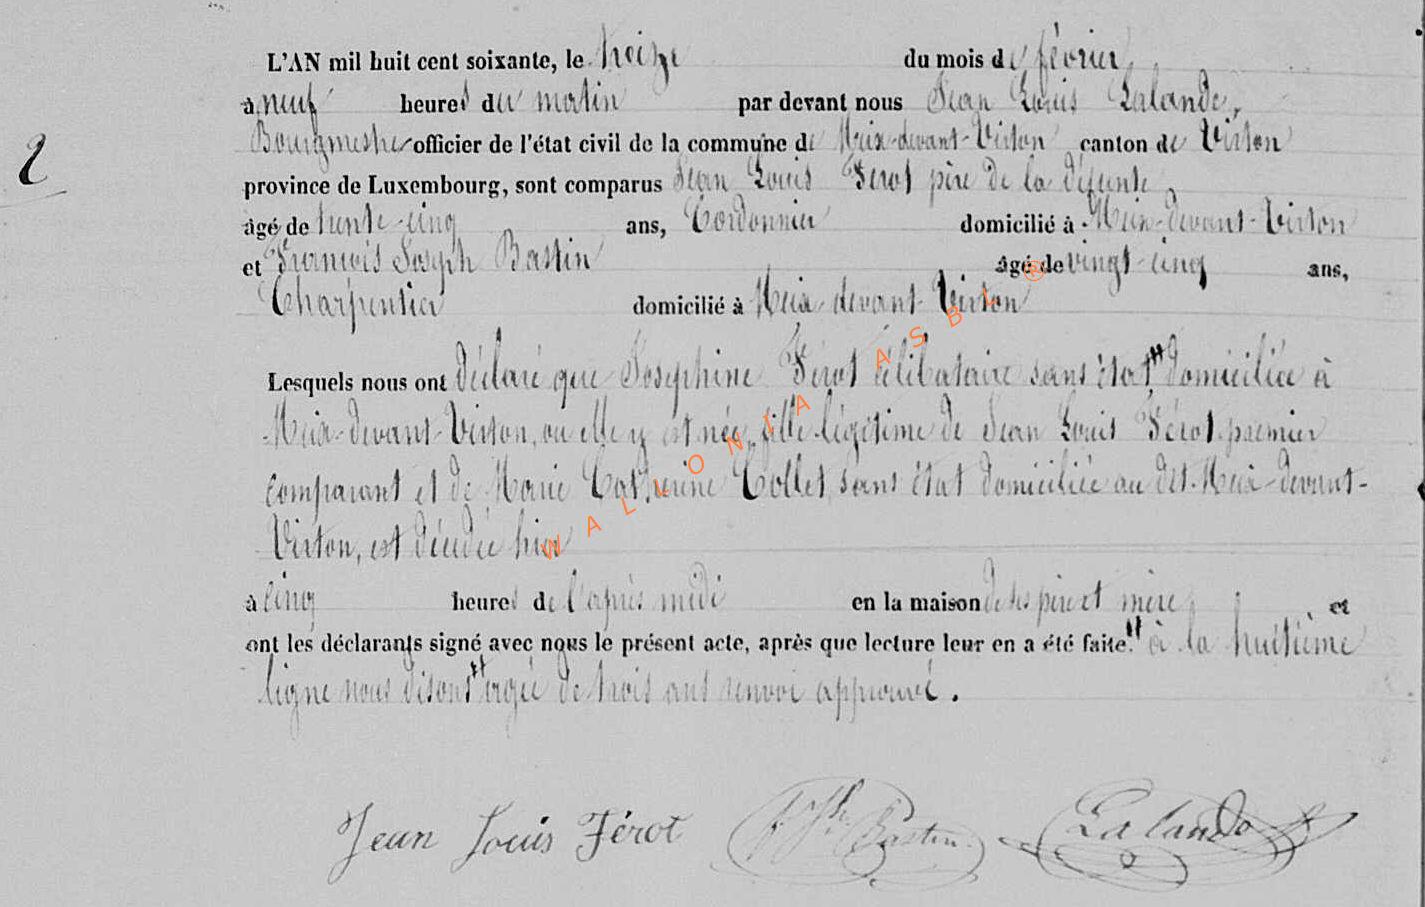 L'AN mil huit cent soixante, le treize du mois de février,
à neuf heures du matin par devant nous Jean Louis Lalande,
2
Bourgmestre officier de l'état civil de la commune de Meix-devant-Virton canton de Virton
province de Luxembourg, sont comparus Jean Louis Férot père de la défunte
âgé de trente-cinq ans, Cordonnier domicilié à Meix-devant-Virton
et François Joseph Bastin âgé de vingt-cinq ans,
Charpentier domicilié à Meix-devant-Virton
Lesquels nous ont déclaré que Josephine Férot célibataire sans état # domiciliée à
Meix-devant-Virton, ou elle y est née, fille légitime de Jean Louis Férot premier
comparant et de Marie Catherine Collet, sans état domiciliée au dit Meix-devant-
Virton, est décédée hier
à cinq heures de l'après midi en la maison de ses père et mère, et
ont les déclarants signé avec nous le présent acte, après que lecture leur en a été faite. # à la huitième
ligne nous disons # agée de trois ans renvoi approuvé.
Jean Louis Férot F. Jph Bastin Lalande
WALLONIA ASBL ®